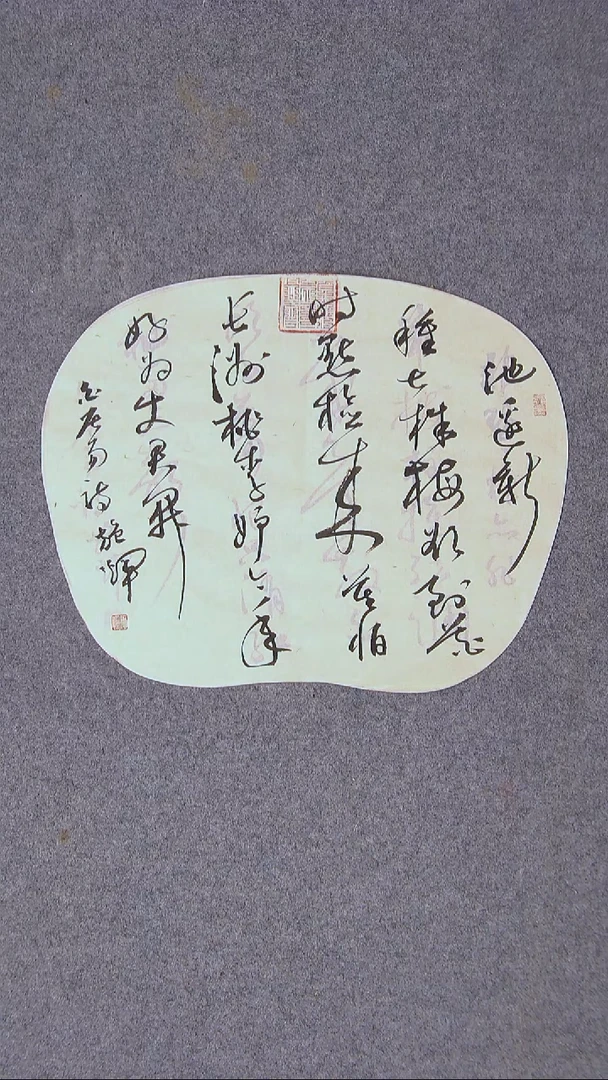 池邊新
種七株梅欲到花
时點检来莫怕
长洲桃李妒今年
好为使君開
白居易诗施輝